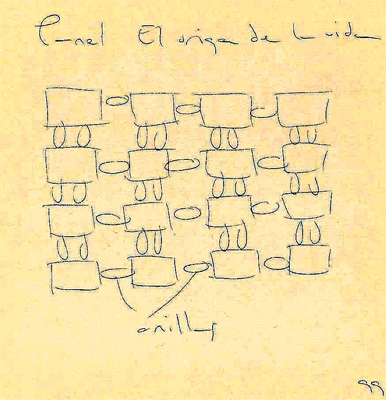 Panel El origen de la vida
anillos
99